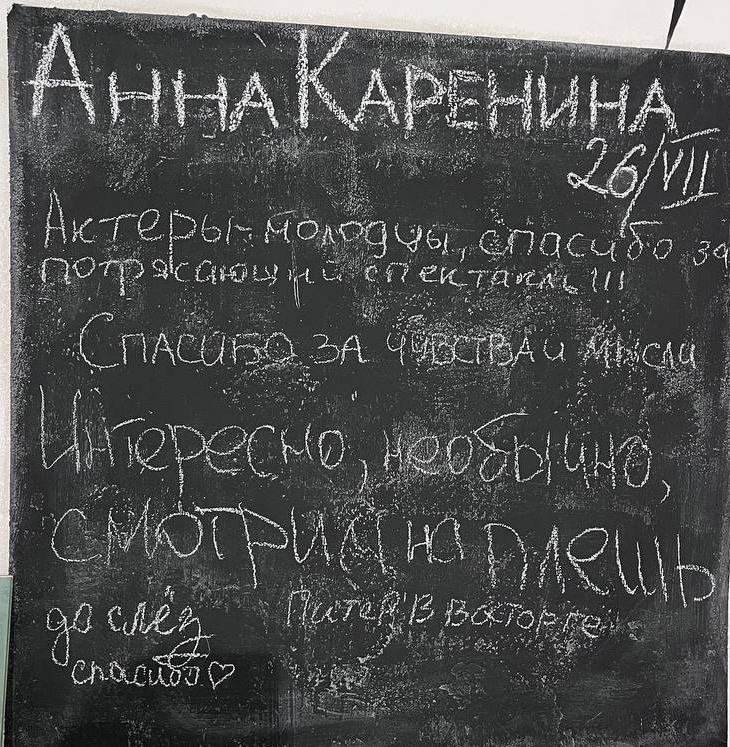 АННА КАРЕНИНА
26/VII
Актеры-молодцы, спасибо за
потрясающий спектакль!!!
СПАСИБО ЗА ЧУВСТВА и мысли
Интересно, необычно,
смотрим на плешь
до слёз
спасибо♡
Питер в восторге